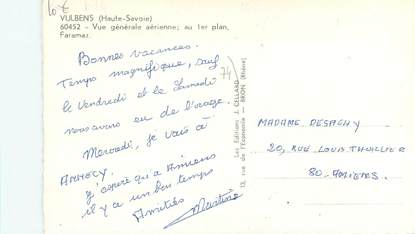 10€
VULBENS (Haute-Savoie)
60452 - Vue générale aérienne; au 1er plan,
Faramaz.
Bonnes vacances.
Temps magnifique, sauf
le Vendredi et le Samedi
nous avons eu de l'orage.
Mercredi, je vais à
ANNECY.
J'espère qu'à Amiens
il y a un beau temps
Amitiés
Martine
74
Les Editions J. CELLARD
13, rue de l'Economie - BRON (Rhône)
MADAME DESACHY
29, RUE LOUIS THUILLIER
80. AMIENS.